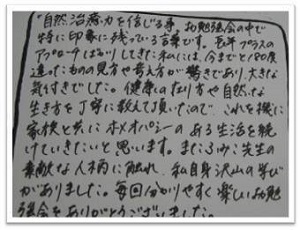 "自然治癒力を信じる事" お勉強会の中で
特に印象に残っている言葉です。長年プラスの
アプローチばかりしてきた私には、今までと180度
違ったものの見方や考え方が驚きであり、大きな
気付きでした。健康の在り方や自然な
生き方を丁寧に教えて頂いたので、これを機に
家族と共にホメオパシーのある生活を続
けていきたいと思います。またふみこ先生の
素敵な人柄に触れ、私自身沢山の学び
がありました。毎回分かりやすく楽しいお勉
強会をありがとうございました。